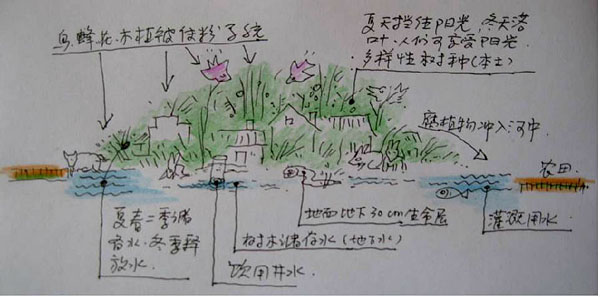 鸟.蜂.花.木植被传粉系统
夏天挡住阳光,冬天落
叶,人们可享受阳光.
多样性树种(本土)
腐植物冲入河中
农田
夏春二季储
水.冬季释
放水.
饮用井水
树木储存水(地下水)
地面地下30cm生命层
灌溉用水